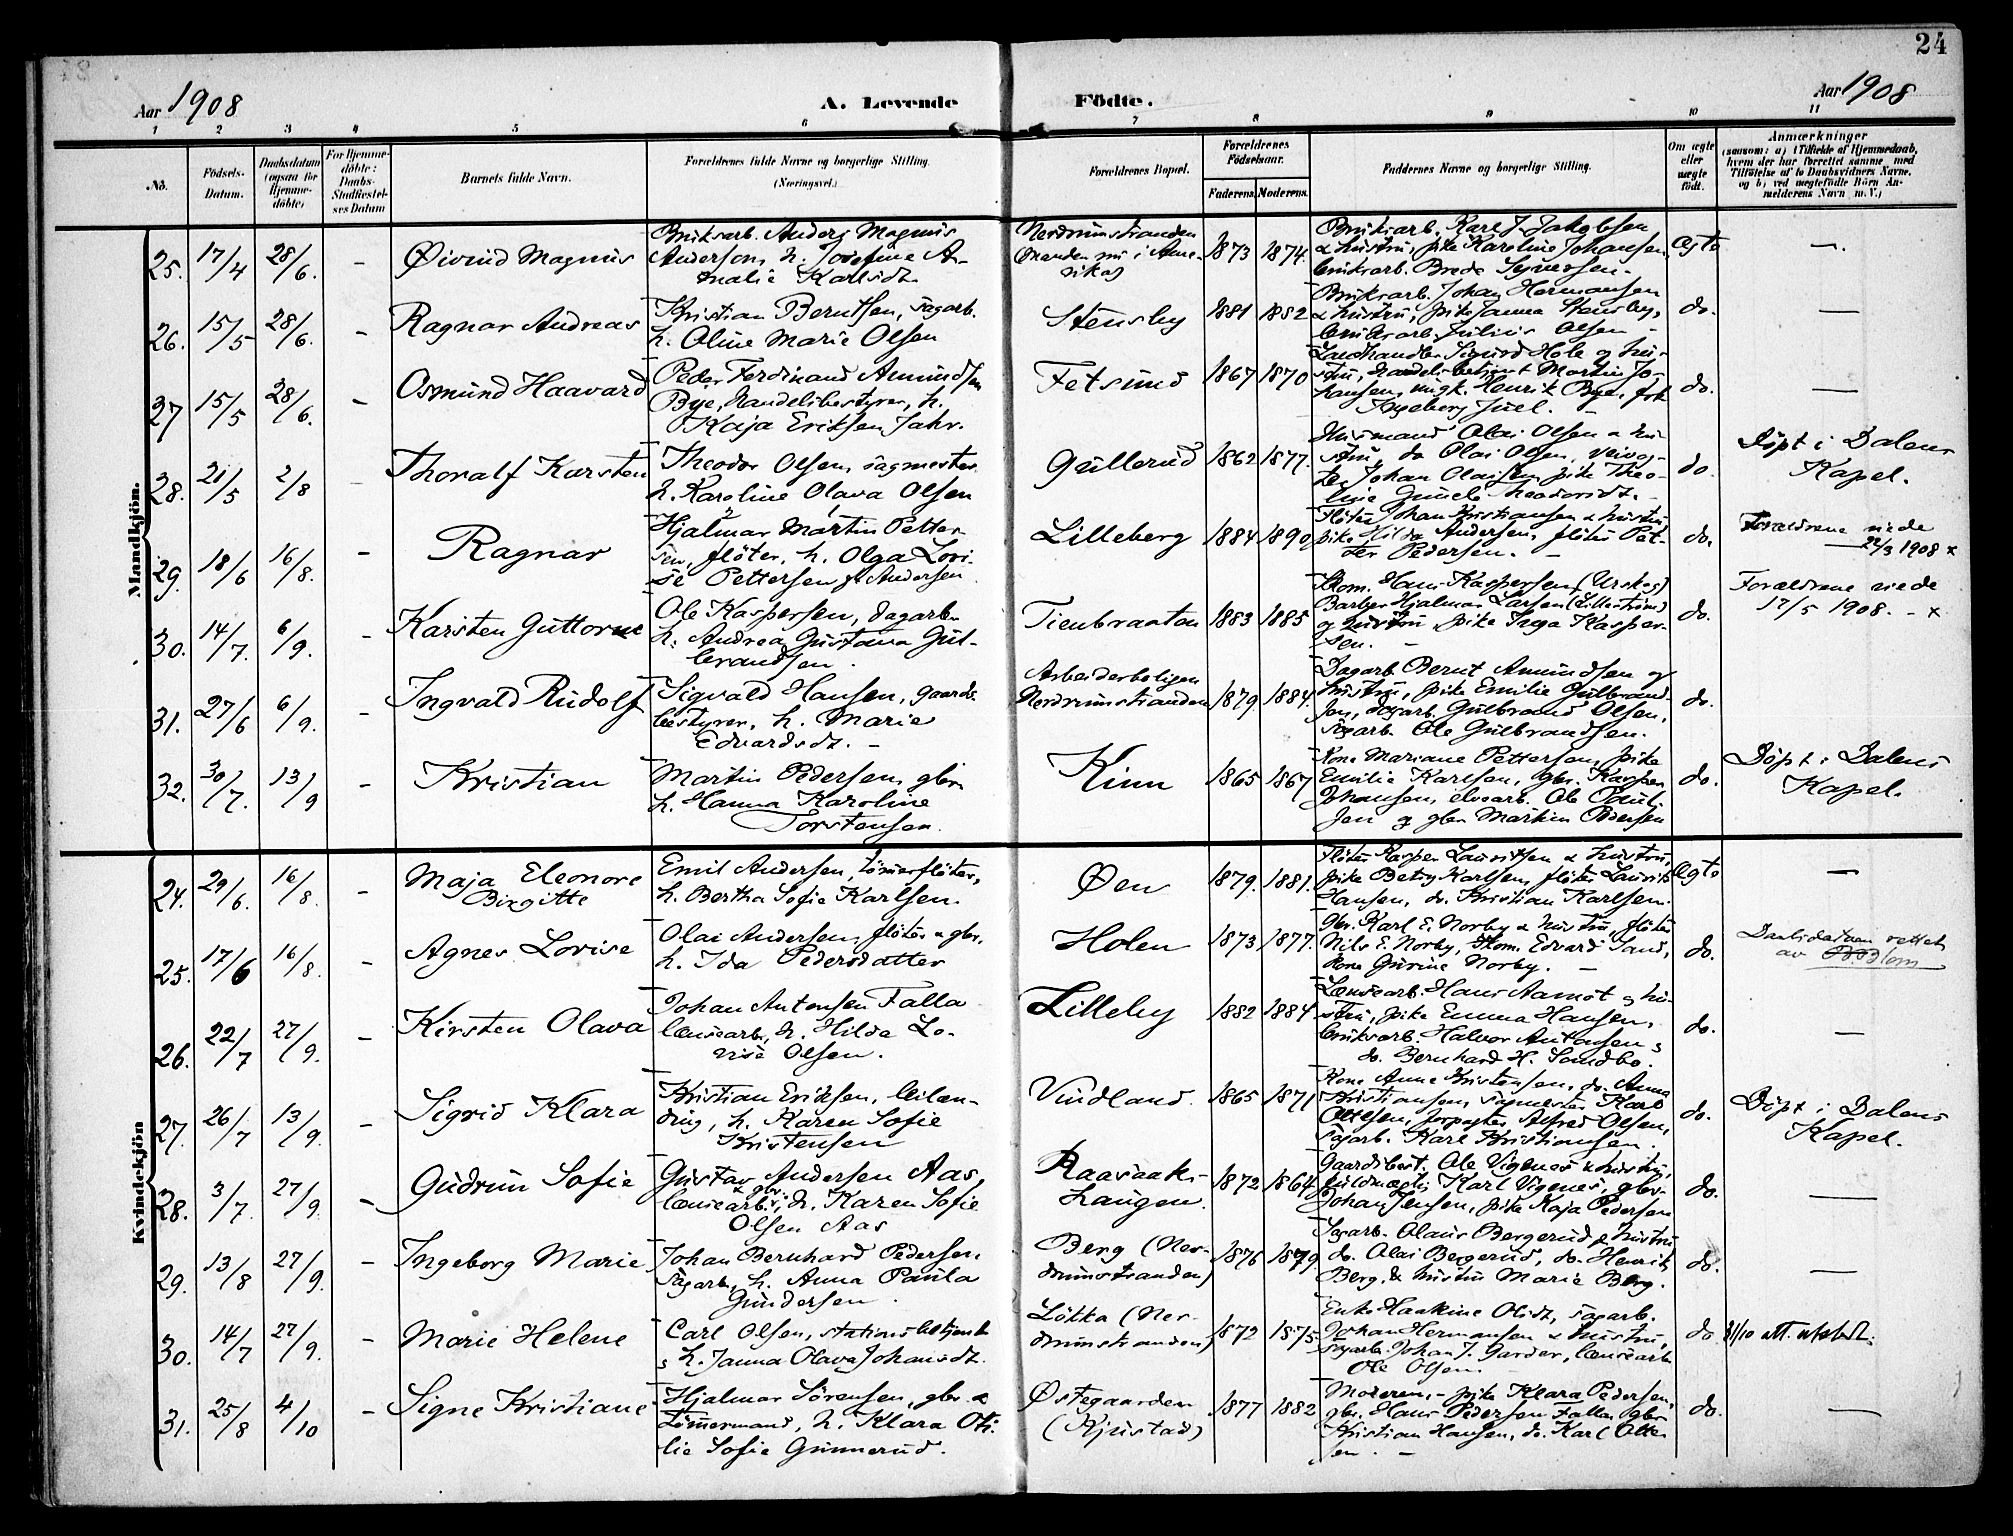 24
Aar 1908
A. Levende
Födte.
Aar 1908
1 2 3 4 5 6 7 8 9 10 11
No.
Födsels-
Datum.
Daabsdatum
(ogsaa for
Hjemme-
döbte)
For Hjemme-
döbte:
Daabs-
Stadfæstel-
ses Datum
Barnets fulde Navn.
Forældrenes fulde Navne og borgerlige Stilling.
(Næringsvei.)
Forældrenes Bopæl.
Forældrenes
Födselsaar.
Faderens.
Moderens.
Faddernes Navne og borgerlige Stilling.
Om ægte
eller
uægte
født.
Anmærkninger
(saasom: a) i Tilfælde af Hjemmedaab,
hvem der har forrettet samme, med
Tilföielse af to Daabsvidners Navne,
og b) ved uægtefödte Börn An-
melderens Navn m. V.)
Mandkjön.
25. 17/4 28/6. - Øivind Magnus
Bruksarb. Anders Magnus
Andersen, h. Josefine A-
malie Karlsdt.
Nerdrumstranden
(Manden nu i Ame-
rika)
1873 1874.
Bruksarb. Karl J. Jakobsen
& hustru, pike Karoline Johansen
bruksarb. Brede Syversen.
Ægte —.
26. 15/5 28/6. - Ragnar Andreas
Kristian Berntsen, sagarb.
h. Oline Marie Olsen
Stensby
1881 1882
Bruksarb. Johan Hermansen
& hustru, pike Janna Stensby,
bruksarb. Julius Olsen -
do. —
27 15/5 28/6. - Osmund Haavard
Peder Ferdinand Amundsen
Bye, handelsbestyrer, h.
Kaja Eriksen Jahr.
Fetsund
1867 1870
Landhandler Sigurd Hole og hu-
stru, handelsbetjent Martin Jo-
hansen, ungk. Henrik Bye, frk
Ingeborg Juel. -
do. —
28. 21/5 2/8 - Thoralf Karsten
Theodor Olsen, sagmester
h. Karoline Olava Olsen
Gullerud
1862 1877.
Husmand Olai Olsen & hu-
stru, do Olai Olsen, veivog-
ter Johan Olaisen, pike Theo-
line Theodorsdt. -
do. Döpt i Dalens
Kapel.
29. 18/6 16/8. - Ragnar
Hjalmar Martin Petter-
sen, flöter, h. Olga Lovi-
se Pettersen f. Andersen
Lilleberg
1884 1890
Flöter Johan Kristiansen & hustru
pike Hilda Andersen, flöter Pet-
ter Pedersen. -
do. Forældrene viede
22/3 1908 x
30. 14/7. 6/9. - Karsten Guttorm
Ole Kaspersen, dagarb.
h. Andrea Gustava Gul-
brandsen.
Tienbraaten
1883 1885
Skom. Hans Kaspersen (Urskog)
Barber Hjalmar Larsen (Lillestrøm)
og hustru, pike Inga Kasper-
sen. -
do. Forældrene viede
17/5 1908. - x
31. 27/6 6/9. - Ingvald Rudolf
Sigvald Hansen, gaards-
bestyrer, h. Marie
Edvardsdt. -
Arbeiderboligen
Nerdrumstranden
1879 1884.
Dagarb. Bernt Amundsen og
hustru, pike Emilie Gulbrand-
sen, dagarb. Gulbrand Olsen,
sagarb. Ole Gulbrandsen.
do.
32. 30/7. 13/9 - Kristian
Martin Pedersen, gbr.
h. Hanna Karoline
Torstensen.
Kinn
1865 1867
Kone Mariane Pettersen, pike
Emilie Karlsen, gbr. Kasper
Johansen, elvearb. Ole Paul-
sen og gbr Martin Pedersen
do. Döpt i Dalens
Kapel.
Kvindekjön
24. 29/6. 16/8. - Maja Eleonore
Birgitte
Emil Andersen, tömmerflöter,
h. Bertha Sofie Karlsen.
Øen
1879. 1881.
Flöter Kasper Lauritsen & hustru,
pike Betzy Karlsen, flöter Laurits
Hansen, do. Kristian Karlsen.
Ægte —
25. 17/6 16/8. - Agnes Lovise
Olai Andersen, flöter & gbr,
h. Ida Pedersdatter
Holen
1873 1877.
Gbr. Karl E. Norby & hustru, flöter
Nils E. Norby, Skom. Edvard Sand,
Kone Gurine Norby. -
do. Daabsdatoen rettet
av
26. 22/7 27/9. - Kirsten Olava
Johan Antonsen Falla
lænsearb., h. Hilda Lo-
vise Olsen.
Lilleby
1882 1884
Lænsearb. Hans Aamot og hu-
stru, pike Emma Hansen,
bruksarb. Halvor Antonsen,
do. Bernhard H. Sandbo.
do. —
27. 26/7 13/9. - Sigrid Klara
Kristian Eriksen, leilæn-
ding, h. Karen Sofie
Kristensen
Vindland.
1865 1871
Kone Anne Kristensen, do. Anna
Kristiansen, sagmester Karl
Ottesen, forpagter Alfred Olsen,
sagarb. Karl Kristiansen.
do. Döpt i Dalens
Kapel.
28. 3/7. 27/9. - Gudrun Sofie
Gustav Andersen Aas,
lænsearb. & gbr., h. Karen Sofie
Olsen Aas
Raasaak-
haugen.
1872 1864
Gaardsbest. Ole Vignes & hustru,
fuldmægtig Karl Vignes, gbr.
Johan Jensen, pike Kaja Pedersen
do. —
29. 13/8 27/9. - Ingeborg Marie
Johan Bernhard Pedersen,
sagarb., h. Anna Paula
Gundersen.
Berg (Ner-
drumstranden)
1876 1879
Sagarb. Olaus Bergerud & hustru
do. Olai Bergerud, do. Henrik
Berg, & hustru Marie Berg.
do. —
30. 14/7 27/9. - Marie Helene
Carl Olsen, stationsbetjent
, h. Janna Olava Johansdt.
Løkka (Ner-
drumstranden)
1872 1875
Enke Haakine Olsdt, sagarb.
Johan Hermansen & hustru,
sagarb. Johan J. Garder, lænsearb.
Ole Olsen
do 31/10 att. utstedt.
31. 25/8 4/10 - Signe Kristiane
Hjalmar Sörensen, gbr. &
tömmermand, h. Klara Oti-
lie Sofie Gunnerud.
Østegaarden
(Kjustad)
1877 1882
Moderen, - pike Klara Pedersen,
gbr. Hans Pedersen Falla, gbr
Kristian Hansen, do. Karl Otter-
sen. -
do. —